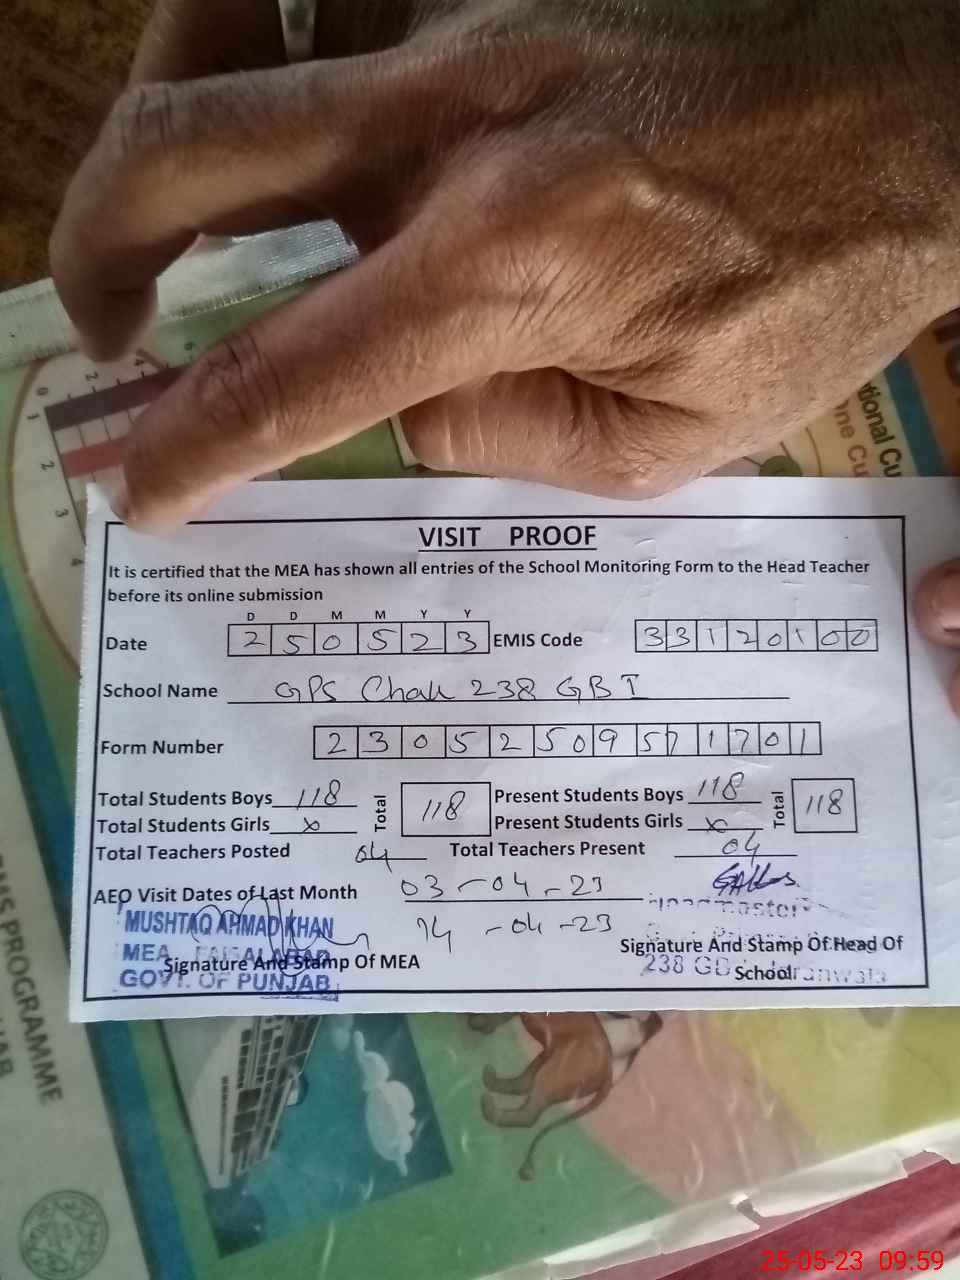 0 2 4 6
1
2
3
4
tional Cu
One Cu
VISIT PROOF
It is certified that the MEA has shown all entries of the School Monitoring Form to the Head Teacher
before its online submission
D D M M Y Y
Date 2 5 0 5 2 3 EMIS Code 3 3 1 2 0 1 0 0
School Name GPS Chak 238 GB I
Form Number 2 3 0 5 2 5 0 9 5 7 1 7 0 1
Total Students Boys 118 Total 118 Present Students Boys 118 Total 118
Total Students Girls x Present Students Girls x
Total Teachers Posted 04 Total Teachers Present 04
AEO Visit Dates of Last Month 03-04-23
14-04-23
MUSHTAQ AHMAD KHAN
MEA FAISALABAD
GOVT. OF PUNJAB
Signature And Stamp Of MEA
Headmaster
Signature And Stamp Of Head Of
School
238 GB
PROGRAMME
25-05-23 09:59